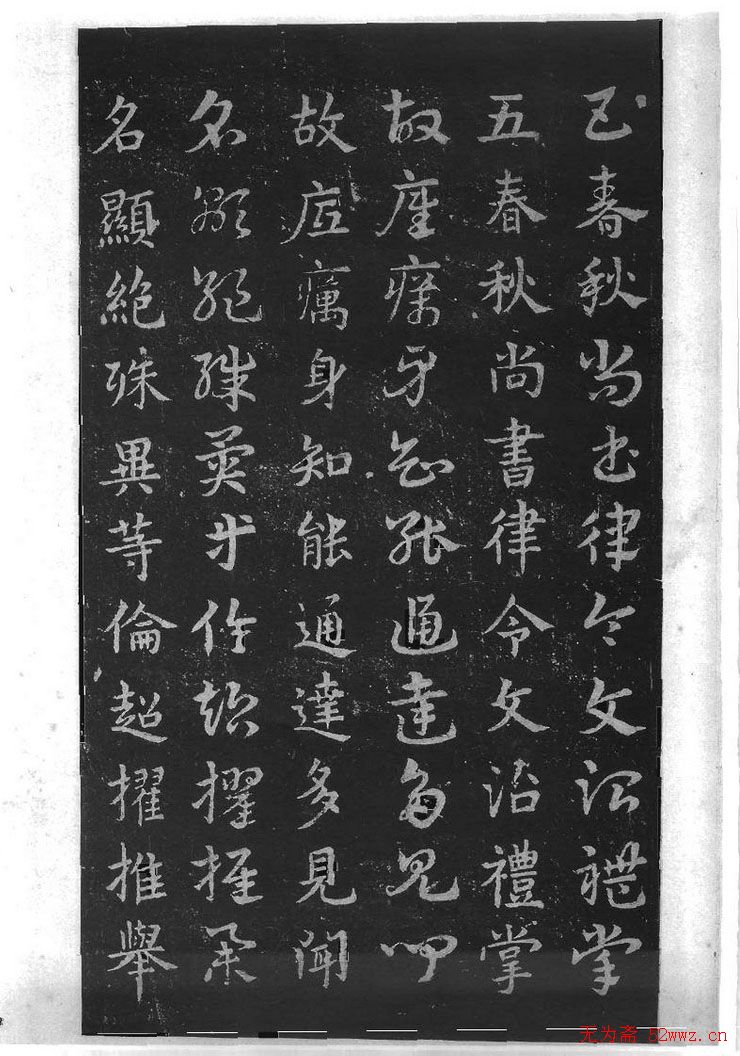 五春秋尚書律令文治禮掌
五春秋尚書律令文治禮掌
故底癘身知能通達多見聞
故底癘身知能通達多見聞
名顯絶殊異等倫超擢推舉
名顯絶殊異等倫超擢推舉
无为斋 52wwz.cn